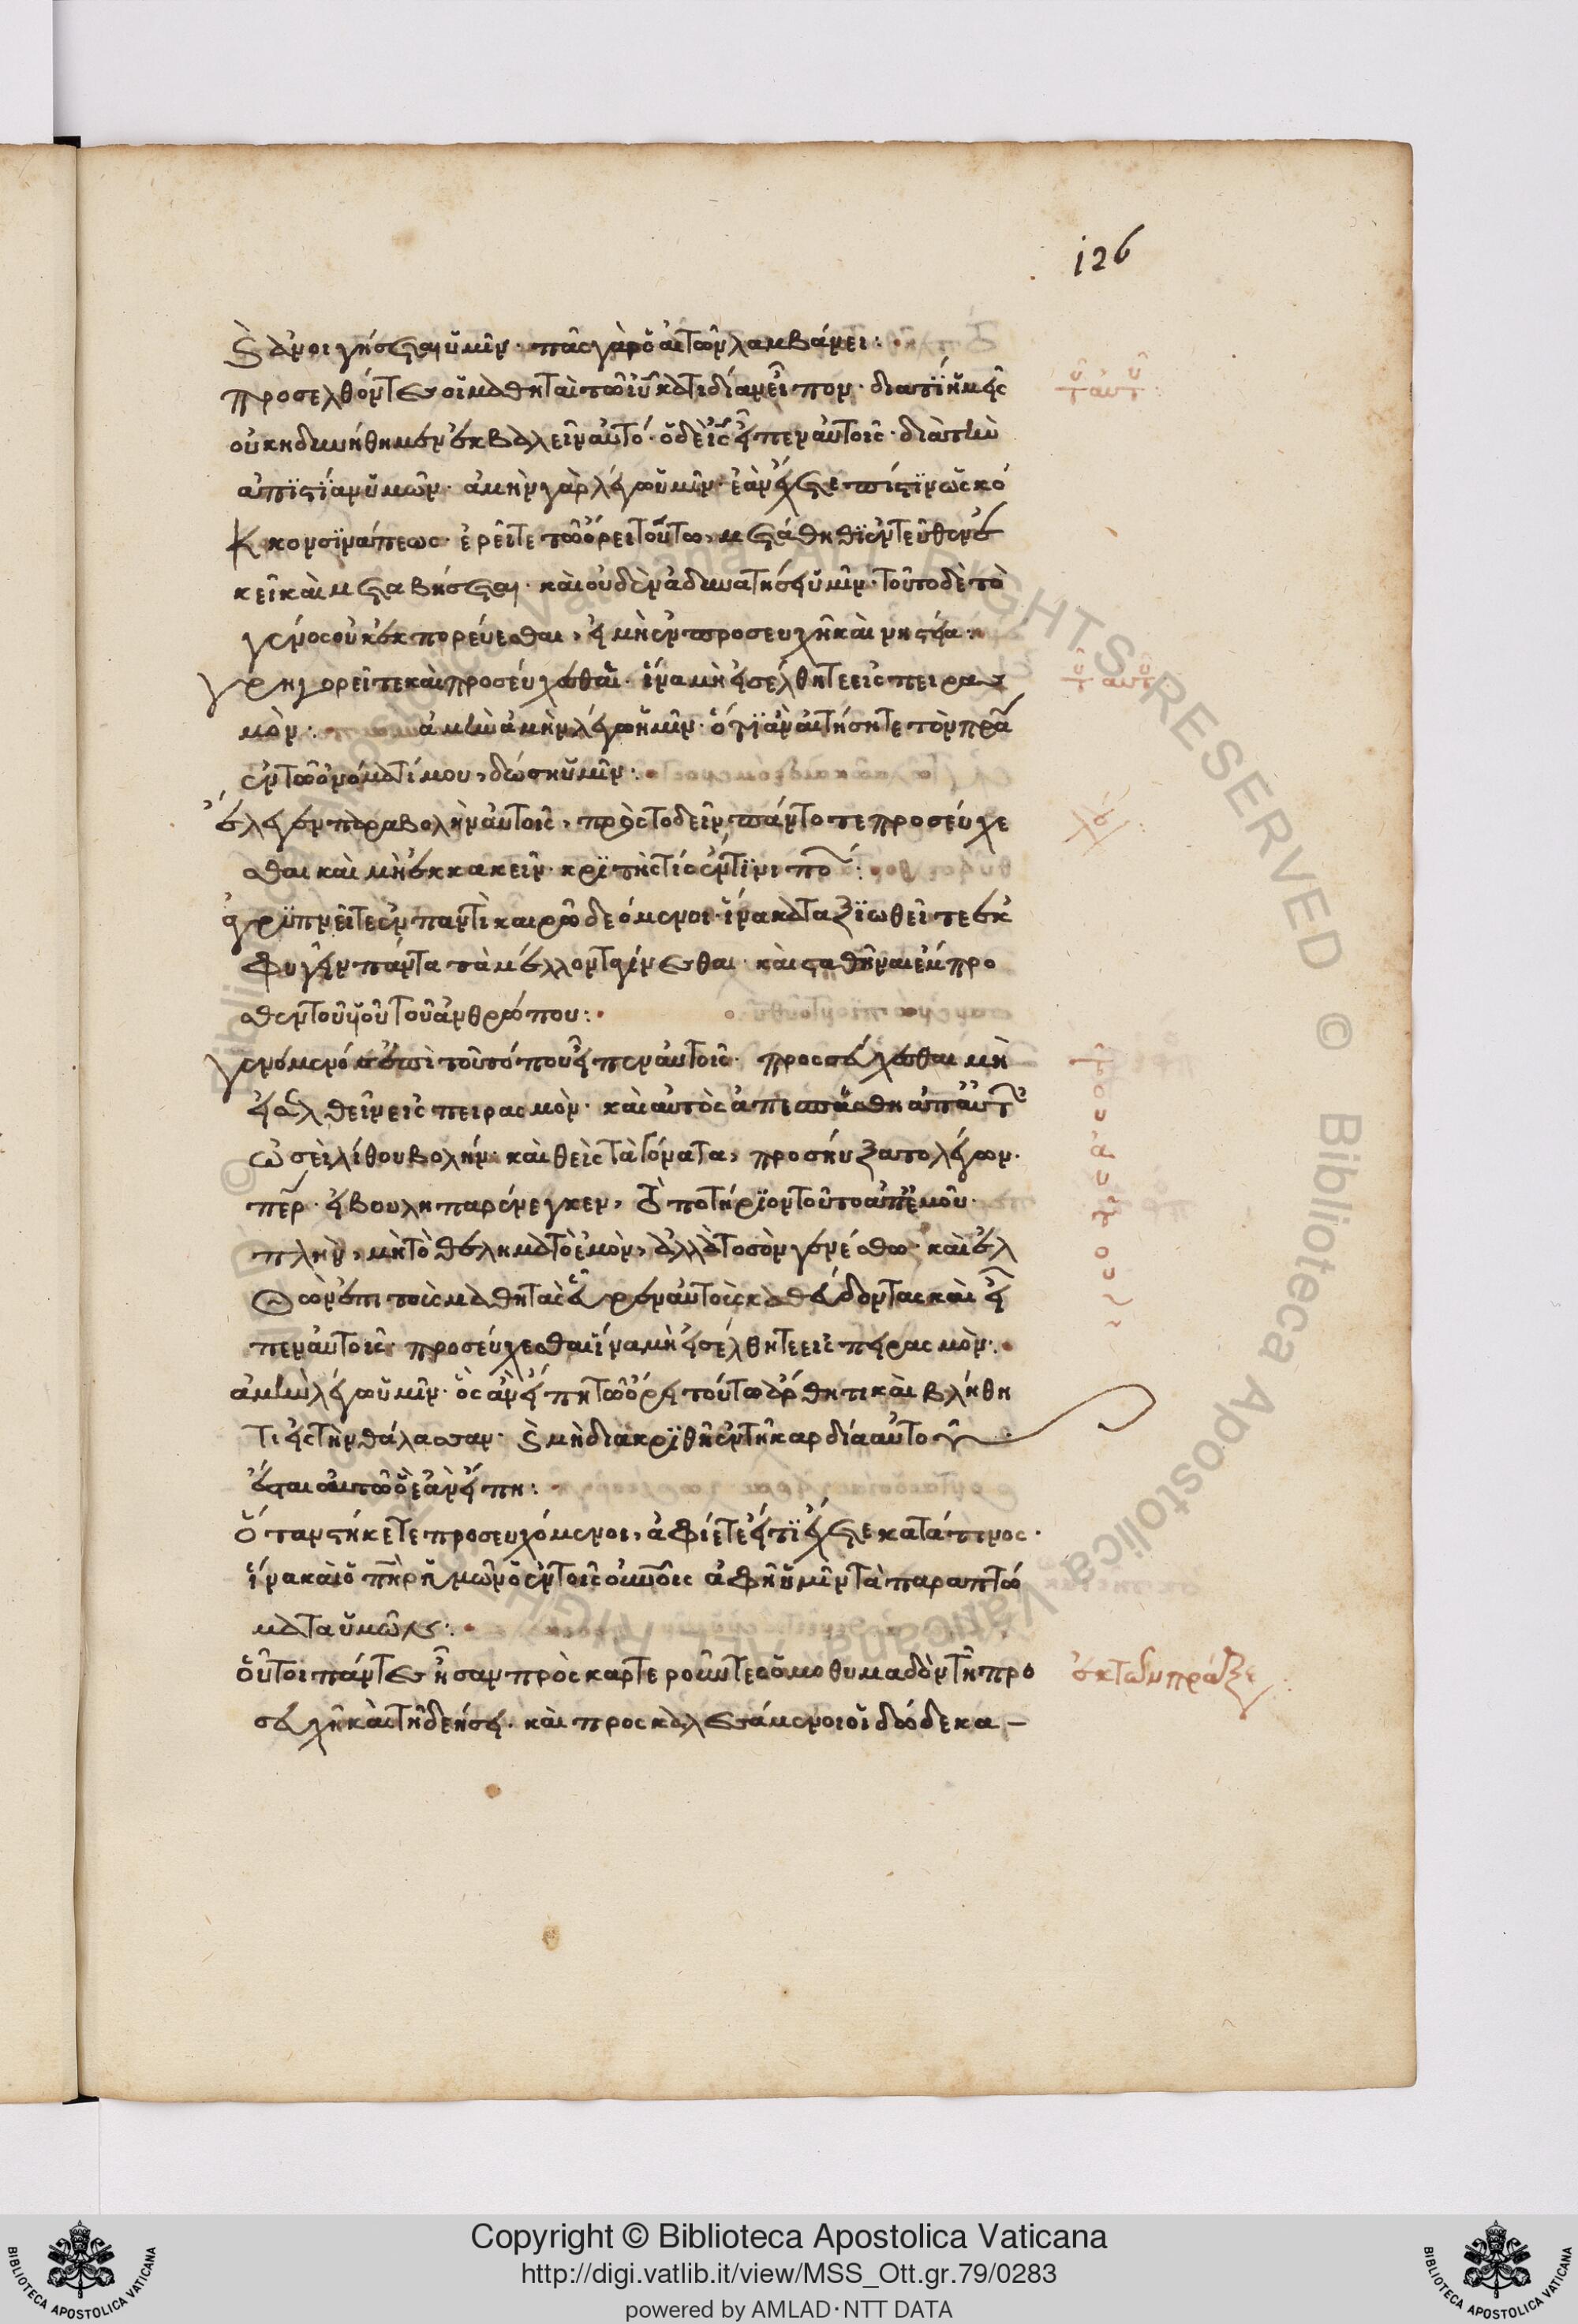 126
καὶ ἀνοιγήσεται ὑμῖν· πᾶς γὰρ ὁ αἰτῶν λαμβάνει:
προσελθόντες οἱ μαθηταὶ τῶ ἰυ κατιδίαν εἶπον· διατί ἡμεῖς
οὐκ ηδυνήθημεν ἐκβαλεῖν αὐτό· ὁ δὲ ις εἶπεν αὐτοῖς· διὰ τὴν
απιστίαν ὑμῶν· ἀμὴν γὰρ λέγω ὑμῖν· ἐὰν ἔχετε πίστιν ὡς κό
κκον σινάπεως· ἐρεῖτε τῶ ὄρει τούτω, μετάθηθι ἐντεῦθεν ἐ
κεῖ καὶ μεταβήσεται· καὶ οὐδὲν ἀδυνατήσει ὑμῖν· τοῦτο δὲ τὸ
γένος οὐκ ἐκπορεύεσθαι, εἰ μὴ ἐν προσευχῆ καὶ νηστεία·
γρηγορεῖτε καὶ προσεύχεσθαι· ἵνα μὴ εἰσέλθητε εἰς πειρασ
μὸν: ἀμὴν ἀμὴν λέγω ὑμῖν· ὅτι ἂν αἰτήσητε τὸν πρα
ἐν τῶ ὀνόματί μου, δώσει ὑμῖν:
ἔλεγεν παραβολὴν αὐτοῖς, πρὸς τὸ δεῖν πάντοτε προσεύχε
σθαι καὶ μὴ ἐκκακεῖν· κριτής τις ἐν τινι πο:
ἀγρϋπνεῖτε ἐν παντὶ καιρῶ δεόμενοι· ἵνα καταξιωθεῖτε ἐκ
φυγεῖν πάντα τὰ μέλλοντα γίνεσθαι· καὶ σταθῆναι ἔμπρο
σθεν τοῦ υἱοῦ τοῦ ἀνθρώπου:
γενόμενος ἐπὶ τοῦ τόπου εἶπεν αὐτοῖς· προσεύχεσθαι μὴ
εἰσελθεῖν εἰς πειρασμὸν· καὶ αὐτὸς ἀπεσπάσθη ἀπ αὐτ
ὡσεὶ λίθου βολήν· καὶ θεὶς τὰ γόνατα, προσηύξατο λέγων·
περ· εἰ βούλη παρένεγκεν, τὸ ποτήριον τοῦτο ἀπ ἐμοῦ·
πλὴν, μὴ τὸ θέλημα τὸ ἐμὸν, ἀλλὰ τὸ σὸν γενέσθω· καὶ ἐλ
θὼν ἐπὶ τοὺς μαθητὰς εὗρεν αὐτοὺς καθεύδοντας καὶ εἶ
πεν αὐτοῖς· προσεύχεσθαι ἵνα μὴ εἰσέλθητε εἰς πειρασμὸν:
ἀμὴν λέγω ὑμῖν· ὃς ἂν εἴπη τῶ ὄρει τούτω ἄρθητι καὶ βλήθη
τι εἰς τὴν θάλασσαν· καὶ μὴ διακριθῆ ἐν τῆ καρδία αὐτοῦ
ἔσται αὐτῶ ὃ ἐὰν εἴπη:
ὅταν στήκετε προσευχόμενοι, ἀφίετε εἴ τι ἔχετε κατά τινος·
ἵνα καὶ ὁ πηρ ἡμῶν ὁ ἐν τοῖς οὐνοῖς ἀφῆ ὑμῖν τὰ παραπτώ
ματα ὑμῶν:
οὗτοι πάντες ἦσαν προσκαρτεροῦντες ὁμοθυμαδὸν τῆ προ
σευχῆ καὶ τῆ δεήσει· καὶ προσκαλεσάμενοι οἱ δώδεκα
ἐκ τῶν πράξε
Copyright © Biblioteca Apostolica Vaticana
http://digi.vatlib.it/view/MSS_Ott.gr.79/0283
powered by AMLAD·NTT DATA